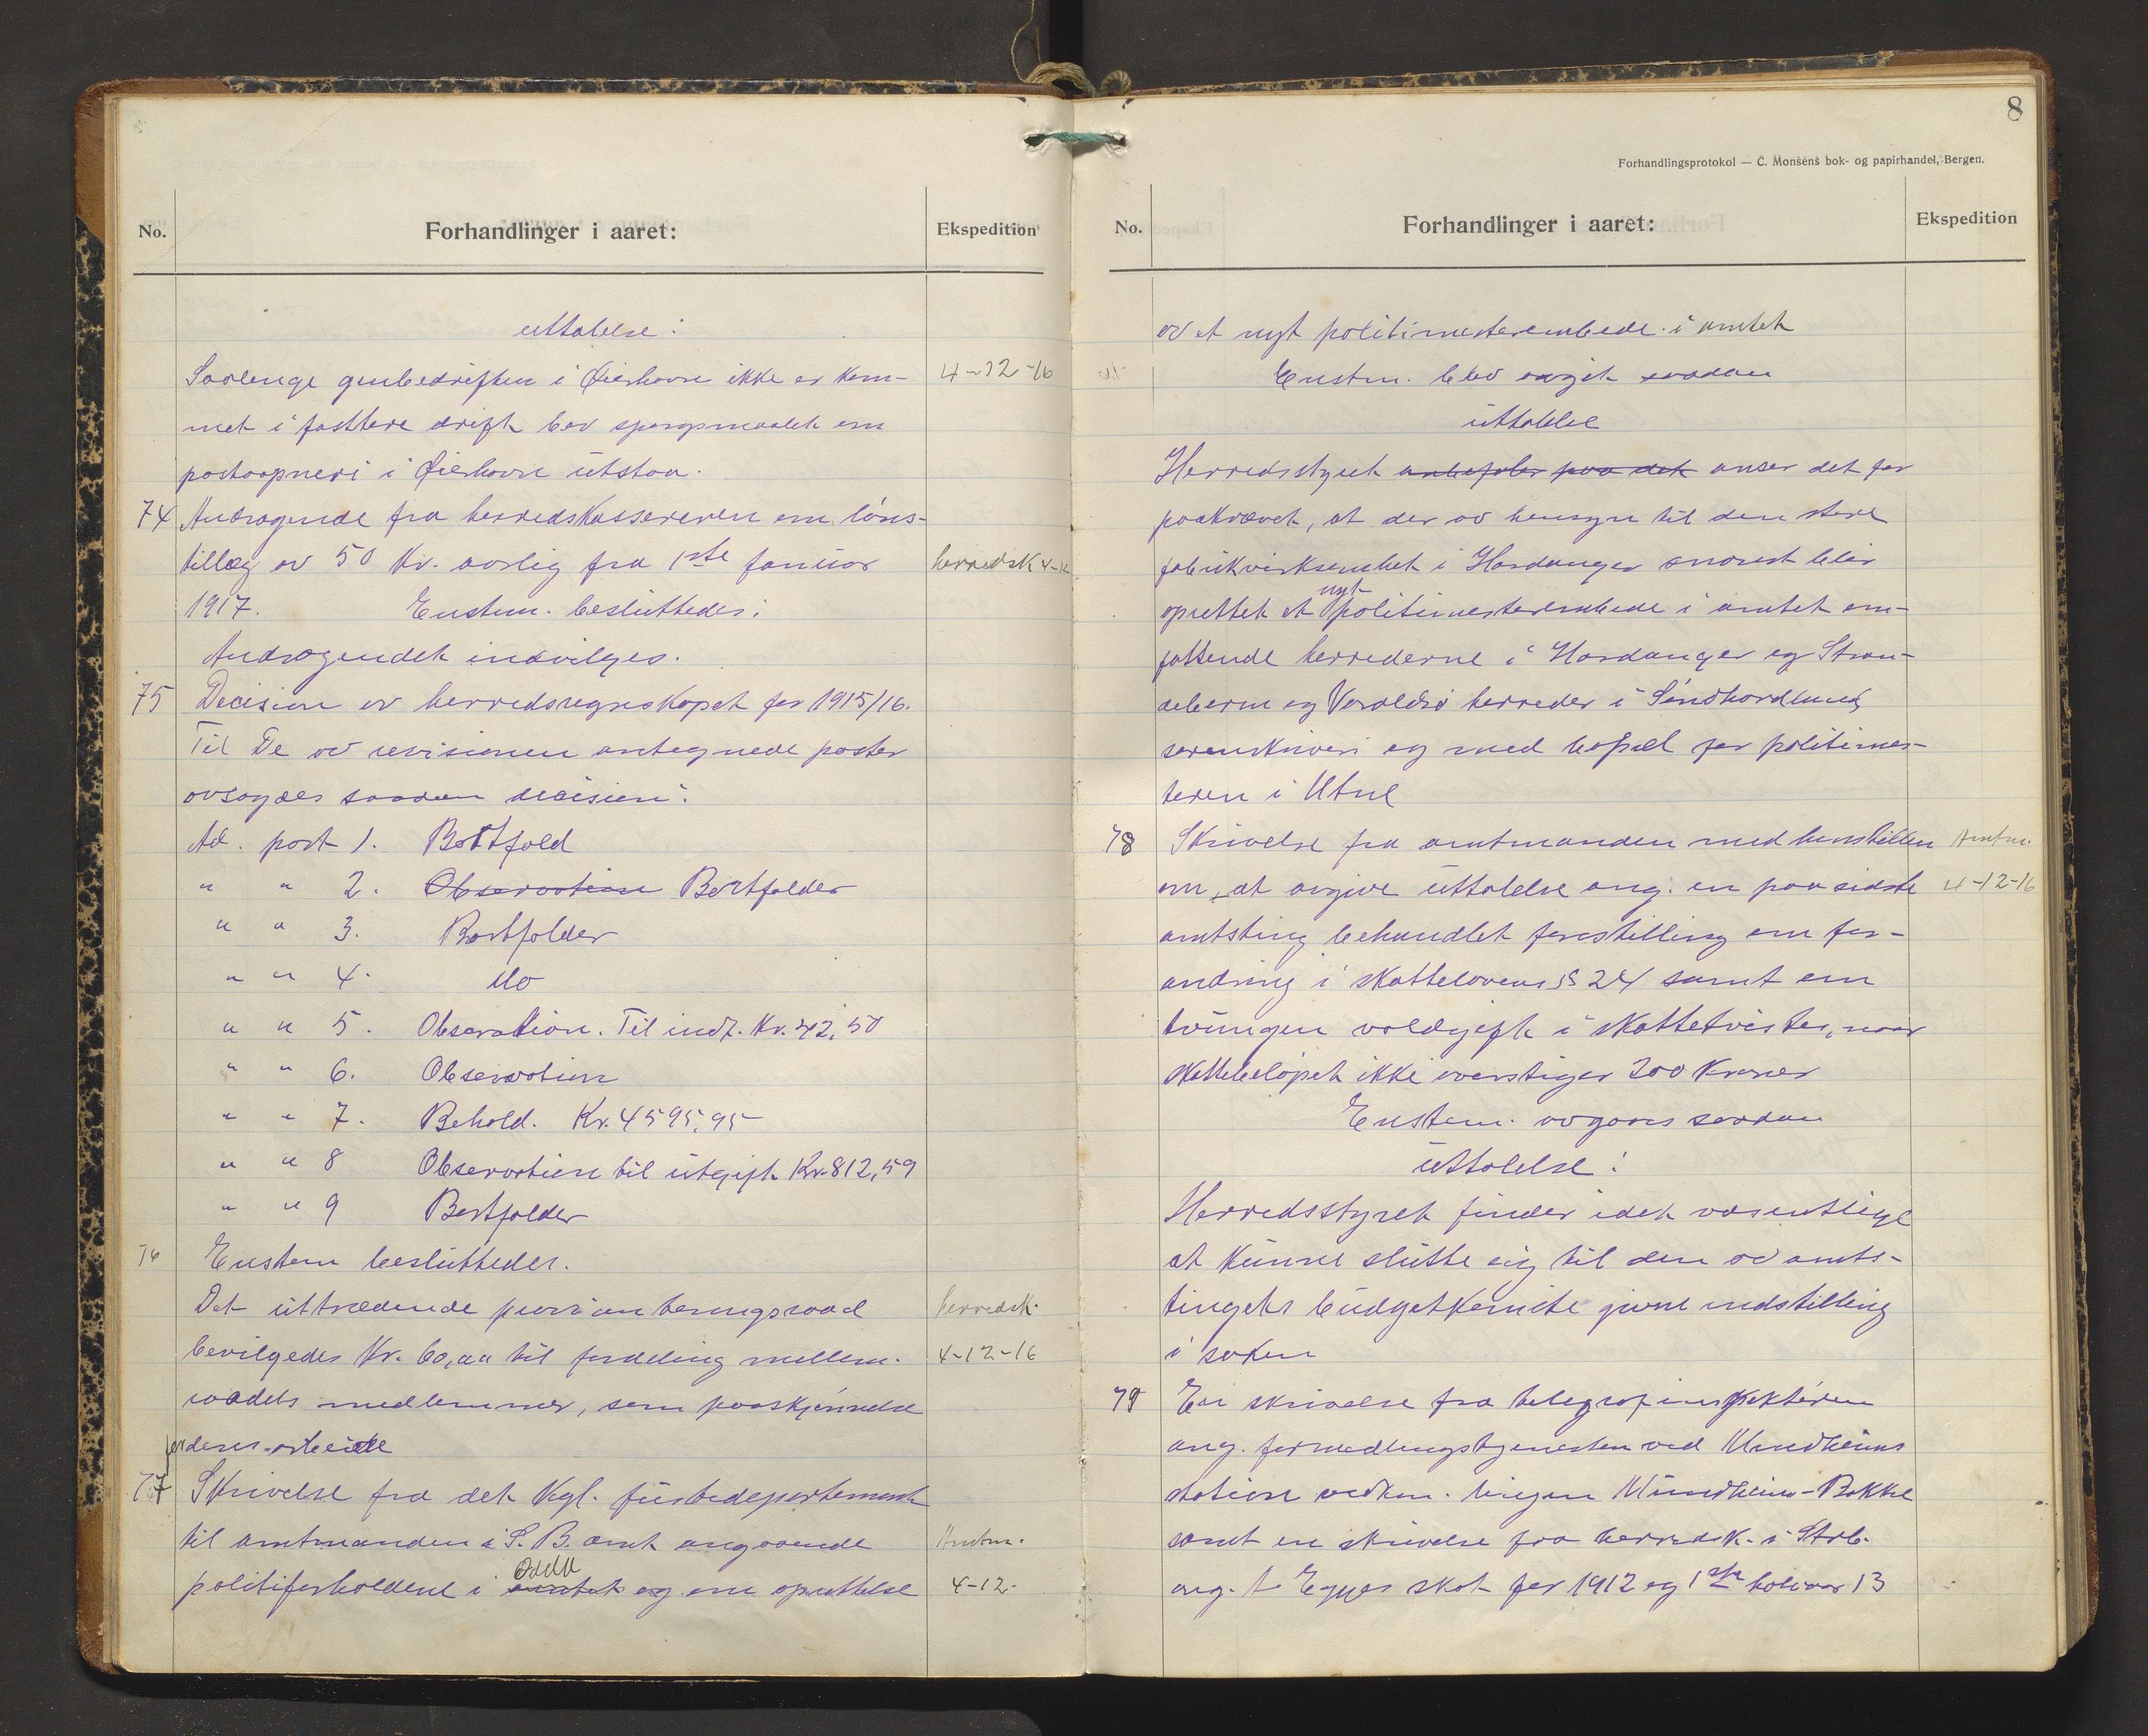 No.
Forhandlinger i aaret:
Ekspedition
uttalelse:
Saalenge grubedriften i Ølerhavn ikke er kom-
4-12-16
met i fastere drift bør spørgsmaalet om
postaapneri i Ølerhavn utstaa.
74 Andragende fra herredskassereren om løns-
tillæg av 50 Kr. aarlig fra 1ste januar
herredsk 4-12
1917. Enstem. besluttedes:
Andragendet indvilges.
75 Decision av herredsregnskapet for 1915/16.
Til De av revisionen antegnede poster
avsagdes saadan decision:
Ad. post 1. Bortfald
" " 2. Observation Bortfalder
" " 3. Bortfalder
" " 4. do
" " 5. Observation. Til indt. Kr. 42,50
" " 6. Observation
" " 7. Behold. Kr. 4595,95
" " 8 Observation til utgift Kr. 812,59
" " 9 Bortfalder
76 Enstem besluttedes.
Det uttrædende provianteringsraad
herredsk.
bevilgedes Kr. 60,00 til fordeling mellem
4-12-16
raadets medlemmer, som paaskjønnelse
for deres arbeide
77 Skrivelse fra det Kgl. justisdepartement
til amtmanden i S. B. amt angaaende
Amtm.
politiforholdene i amtet Odda og om oprettelse
4-12-
8
Forhandlingsprotokol — C. Monsens bok- og papirhandel, Bergen.
No.
Forhandlinger i aaret:
Ekspedition
av et nyt politimesterembede i amtet
Enstm. blev avgit saadan
uttalelse
Herredsstyret anbefaler paa det anser det for
paakrævet, at der av hensyn til den store
fabrikvirksomhet i Hardanger snarest blir
oprettet et nyt politimesterembede i amtet om-
fattende herrederne i Hardanger og Stran-
debarm og Varaldsø herreder i Søndhordland
sorenskriveri og med bopæl for politimes-
teren i Utne
78 Skrivelse fra amtmanden med henstillen
Amtm.
om, at avgive uttalelse ang. en paa sidste
4-12-16
amtsting behandlet forestilling om for-
andring i skattelovens § 24 samt om
tvungen voldgift i skattetvister, naar
skattebeløpet ikke overstiger 200 Kroner
Enstem. avgaves saadan
uttalelse:
Herredsstyret finder idet væsentlige
at kunne slutte sig til den av amts-
tingets budgetkomite givne indstilling
i saken
79 En skrivelse fra telegrafinspektøren
ang. formedlingstjenesten ved Mundheims
station vedkm. linjen Mundheim-Bakke
samt en skrivelse fra herredsk. i Strb.
ang. skat for 1912 og 1ste halvaar 13